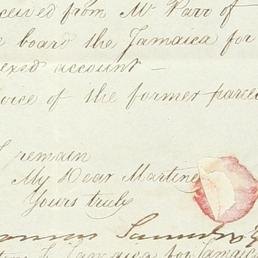 ceived from Mr Parr of
board the Jamaica for
exed account —
voice of the former parcel
I remain
My Dear Martine
Yours truly